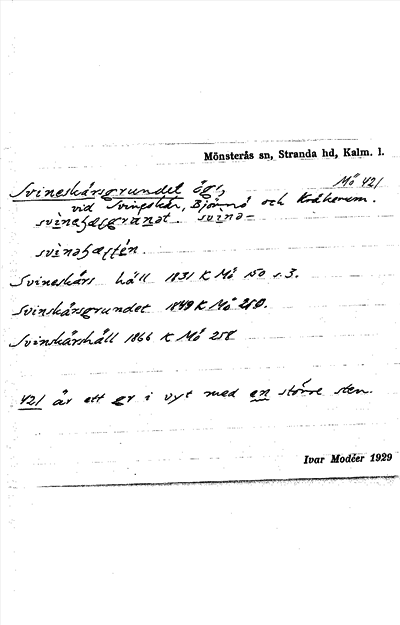 Mönsterås sn, Stranda hd, Kalm. l.
Svineskärsgrundet ögr, Mö 421
vid Svingskär, Björnö och Kråkerum.
svinəhæsgrunət svinə-
svinəhæstén.
Svineskärs häll 1831 K Mö 150 s. 3.
Svinskärsgrundet 1849 K Mö 250.
Svinskärshäll 1866 K Mö 258
421 är ett gr i vyt med en större sten.
Ivar Modéer 1929